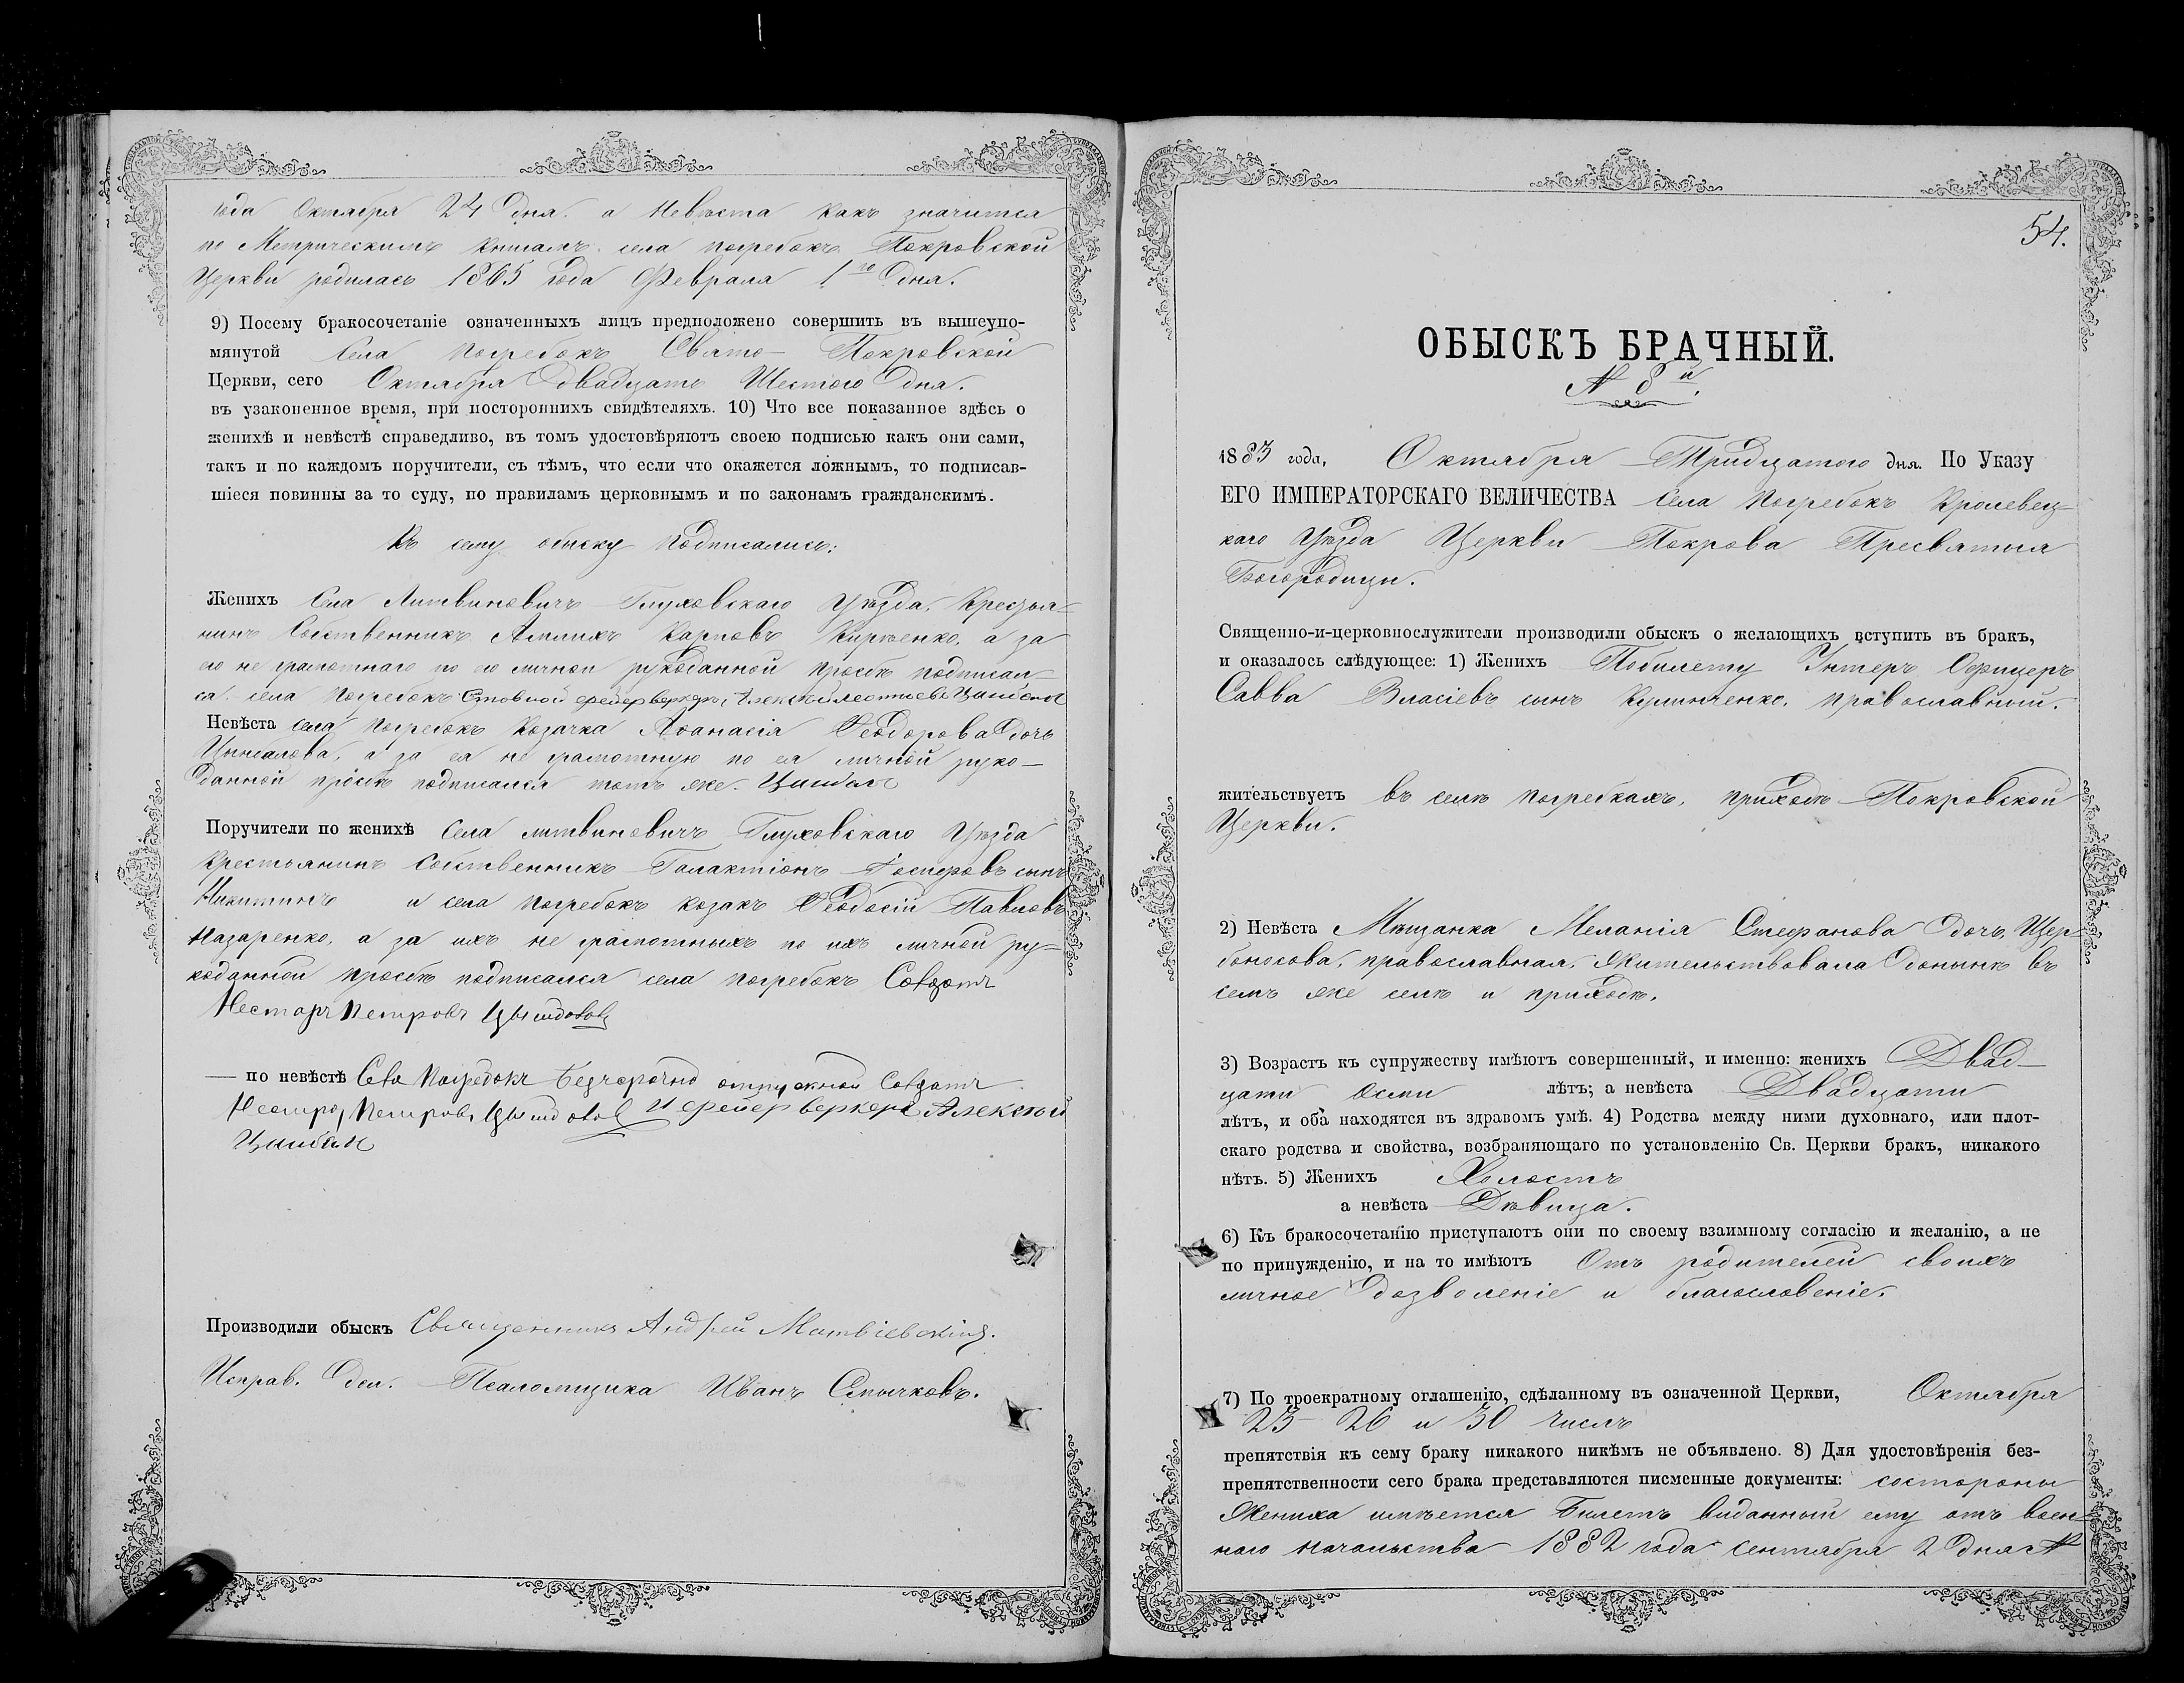 года Октября 24 дня. а Невѣста какъ значится
по Метрическимъ книгамъ села Погребокъ Покровской
Церкви родилась 1865 года Февраля 1го дня.
9) Посему бракосочетаніе означенныхъ лицъ предположено совершить въ вышеупо-
мянутой Села Погребокъ Свято-Покровской
Церкви, сего Октября двадцать Шестого дня.
въ узаконенное время, при постороннихъ свидѣтеляхъ. 10) Что все показанное здѣсь о
женихѣ и невѣстѣ справедливо, въ томъ удостовѣряютъ своею подписью какъ они сами,
такъ и по каждомъ поручители, съ тѣмъ, что если что окажется ложнымъ, то подписав-
шіеся повинны за то суду, по правиламъ церковнымъ и по законамъ гражданскимъ.
Къ сему обыску подписались:
Женихъ Села Литвиновичъ Глуховскаго Уѣзда, Крестья-
нинъ Собственникъ Карповъ а за
его не грамотнаго по его личной рукоданной просьбѣ подписал-
ся села Погребокъ фейерверкеръ
Невѣста села Погребокъ Козачка Афанасія Феодорова дочь
а за ея не грамотную по ея личной руко-
данной просьбѣ подписался тотъ же Цимбал
Поручители по женихѣ Села Литвиновичъ Глуховскаго Уѣзда
Крестьянинъ Собственникъ Галактіонъ сынъ
Никитинъ и села Погребокъ козакъ Феодосій Павловъ
Назаренко, а за ихъ не грамотныхъ по ихъ личной ру-
коданной просьбѣ подписался села Погребокъ
Нестор Петровъ
— по невѣстѣ Села Погребокъ
Петровъ и фейерверкеръ Алексѣй
Цимбал
Производили обыскъ Священникъ Андрей Матвіевскій.
Исправ. дол. Псаломщика Иванъ Смычковъ.
54.
ОБЫСКЪ БРАЧНЫЙ.
№ 8й.
1883 года, Октября Тридцатого дня. По Указу
ЕГО ИМПЕРАТОРСКАГО ВЕЛИЧЕСТВА Села Погребокъ Кролевец-
каго Уѣзда Церкви Покрова Пресвятыя
Богородицы.
Священно-и-церковнослужители производили обыскъ о желающихъ вступить въ бракъ,
и оказалось слѣдующее: 1) Женихъ Побилету Унтеръ Офицеръ
Савва Власіевъ сынъ православный.
жительствуетъ въ селѣ Погребкахъ, приходѣ Покровской
Церкви.
2) Невѣста Мѣщанка Меланія Стефанова дочь, Щер-
боносова, православная, Жительствовала донынѣ въ
семъ же селѣ и приходѣ.
3) Возрастъ къ супружеству имѣютъ совершенный, и именно: женихъ Двад-
цати осми лѣтъ; а невѣста Двадцати
лѣтъ, и оба находятся въ здравомъ умѣ. 4) Родства между ними духовнаго, или плот-
скаго родства и свойства, возбраняющаго по установленію Св. Церкви бракъ, никакого
нѣтъ. 5) Женихъ Холостъ
а невѣста Дѣвица.
6) Къ бракосочетанію приступаютъ они по своему взаимному согласію и желанію, а не
по принужденію, и на то имѣютъ Отъ родителей своихъ
личное дозволеніе и благословеніе.
7) По троекратному оглашенію, сдѣланному въ означенной Церкви, Октября
23 26 и 30 числъ
препятствія къ сему браку никакого никѣмъ не объявлено. 8) Для удостовѣренія без-
препятственности сего брака представляются писменные документы: состороны
Жениха имѣется Билетъ виданный ему отъ воен-
наго начальства 1882 года сентября 2 дня №